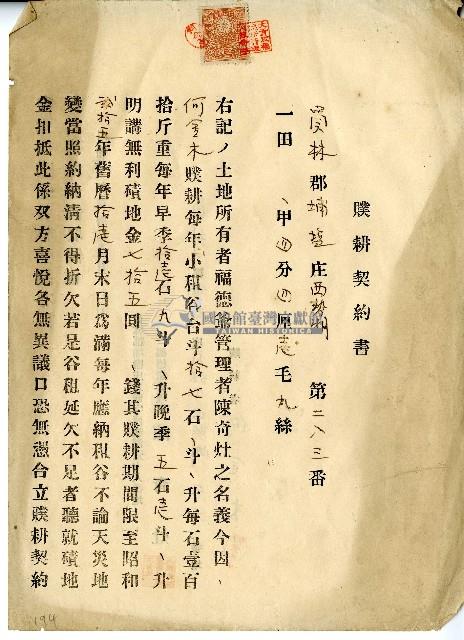 贌耕契約書
員林郡埔塩庄西勢湖 第二八三番
一田 、甲四分四厘壱毛九絲
右記ノ土地所有者福德爺管理者陳奇灶之名義今因、
何金木贌耕每年小租谷台斗拾七石、斗、升每石壹百
拾斤重每年早季拾壱石九斗、升晚季五石壱斗、升
明講無利磧地金七拾五圓、錢其贌耕期間限至昭和
貳拾五年舊曆拾壱月末日爲滿每年應納租谷不論天災地
變當照約納清不得折欠若是谷租延欠不足者聽就磧地
金扣抵此係双方喜悅各無異議口恐無憑合立贌耕契約
國史館臺灣文獻館
TAIWAN HISTORICA
194